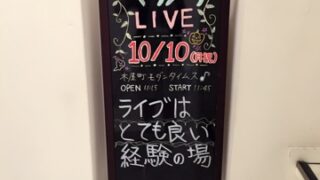 LIVE
10/10(月祝)
木屋町モダンタイムス♪
OPEN 11:15 START 11:45
ライブは
とても良い
経験の場